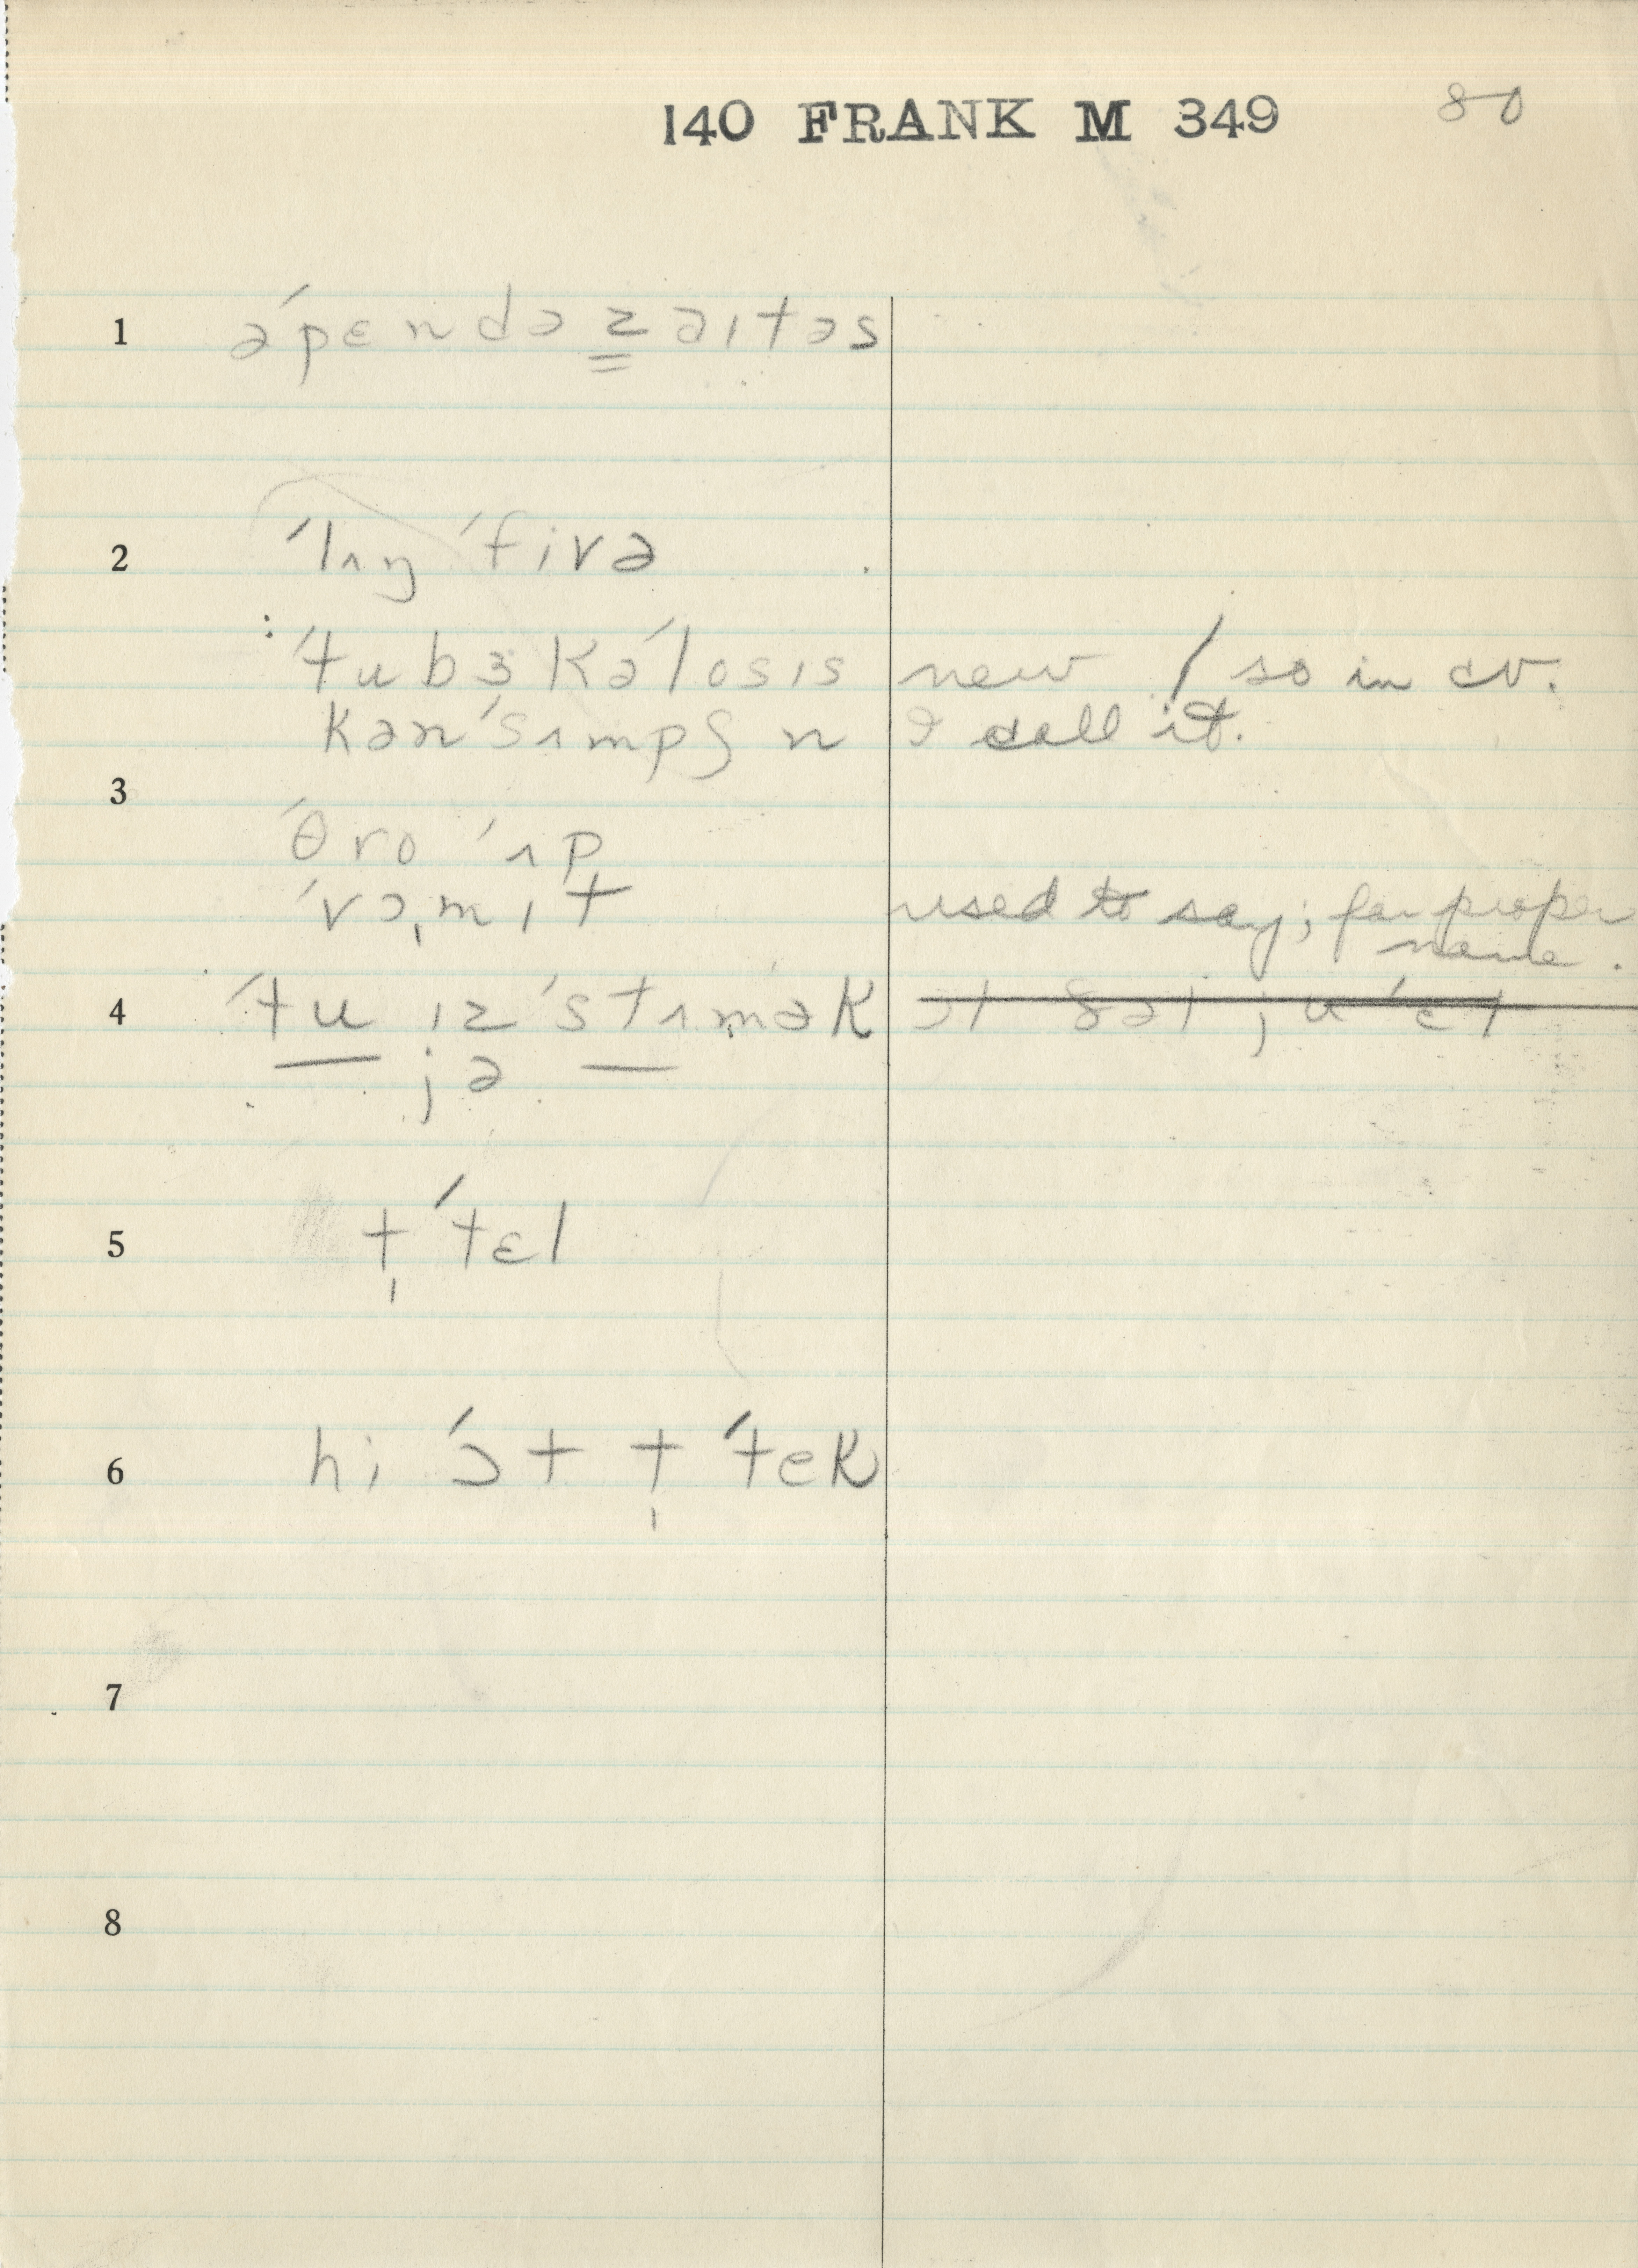 140 FRANK M 349 80
1 əˊpɛndəzaɪtəs
2 ˈlʌŋ ˈfivə
ˈtubɜkəˈlosɪs new / so in cv.
kənˈsʌmpʃn I call it.
3
ˈθro ˈʌp
ˈvɔ̩mɪt used to say; far proper
name.
4 ˈtu ɪz ˈstʌmək
jə
5 t̩ ˈtɛl
6 hi ˈɔt t̩ ˈtek
7
8